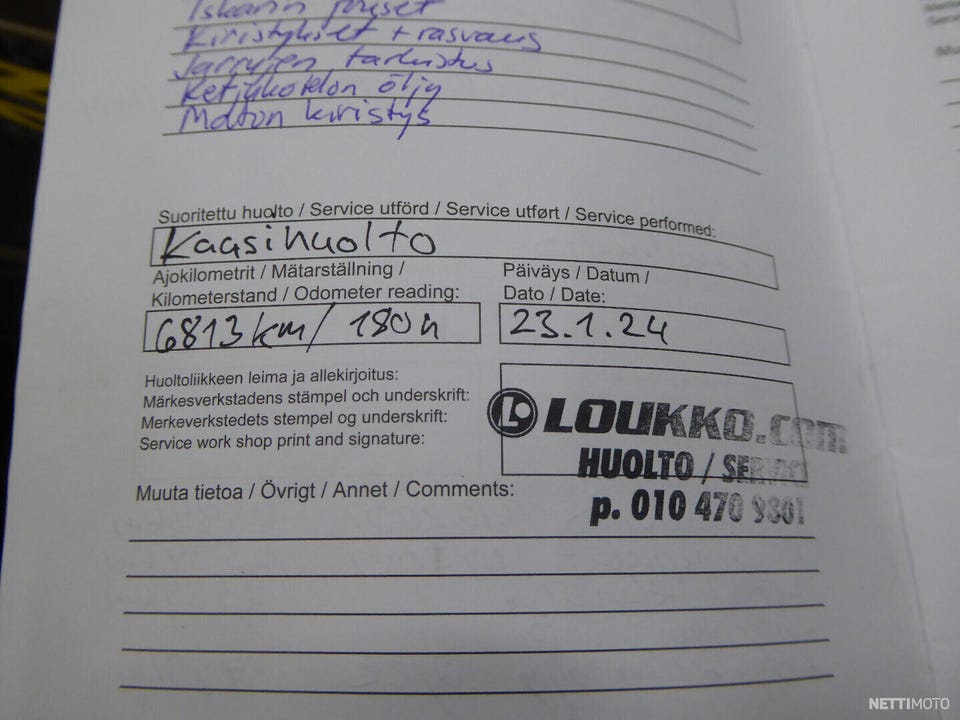 Iskarin jouset
Kiristykset + rasvaus
Jarrujen tarkistus
Ketjukotelon öljy
Maton kiristys
Suoritettu huolto / Service utförd / Service utført / Service performed:
Kaasihuolto
Ajokilometrit / Mätarställning /
Kilometerstand / Odometer reading:
Päiväys / Datum /
Dato / Date:
6813 km / 180 h
23.1.24
Huoltoliikkeen leima ja allekirjoitus:
Märkesverkstadens stämpel och underskrift:
Merkeverkstedets stempel og underskrift:
Service work shop print and signature:
LOUKKO.com
HUOLTO / SERVICE
p. 010 470 9801
Muuta tietoa / Övrigt / Annet / Comments:
NETTIMOTO